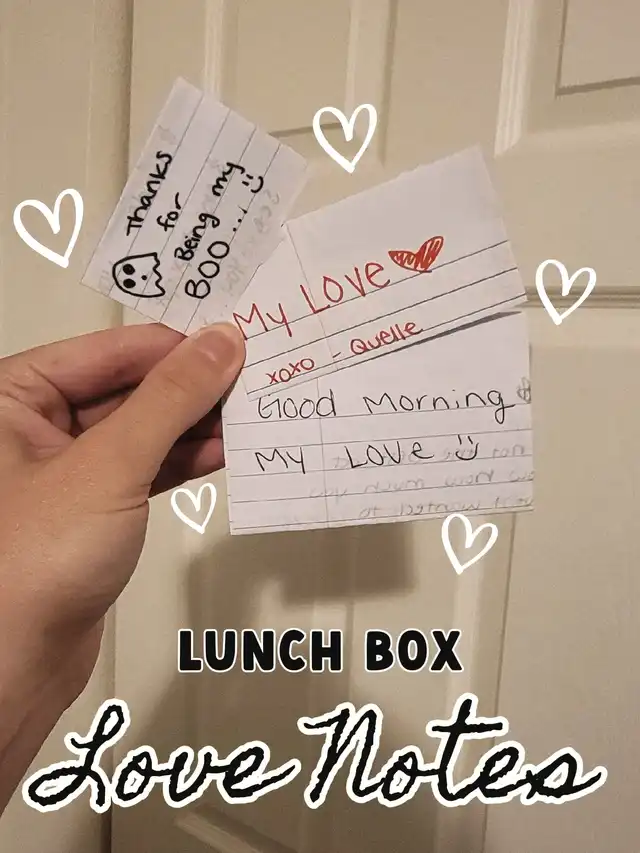 Thanks
for
Being my
BOO...
My LOVE
xoxo - Quelle
Good Morning
My LOVE
LUNCH BOX
Love Notes